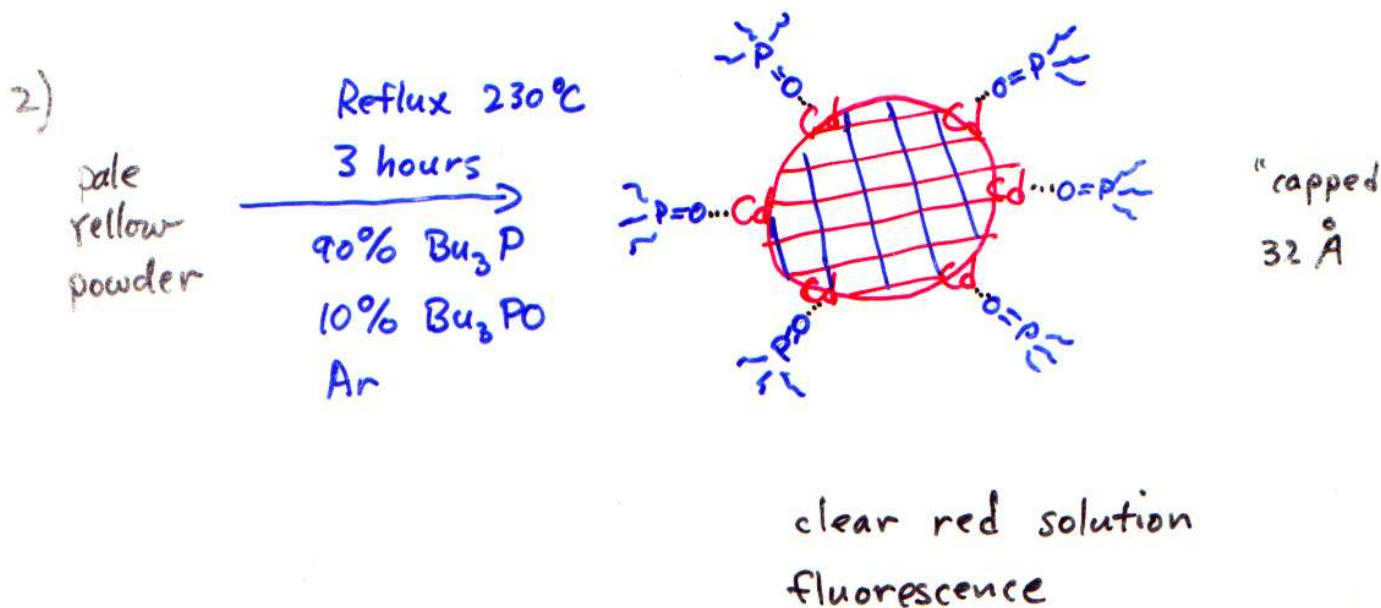 2)
pale
rellow
powder
Reflux 230°C
3 hours
90% Bu₃P
10% Bu₃PO
Ar
P=O···Cd
Cd···O=P
P=O···Cd
Cd···O=P
P=O···Cd
Cd···O=P
"capped
32 Å
clear red solution
fluorescence